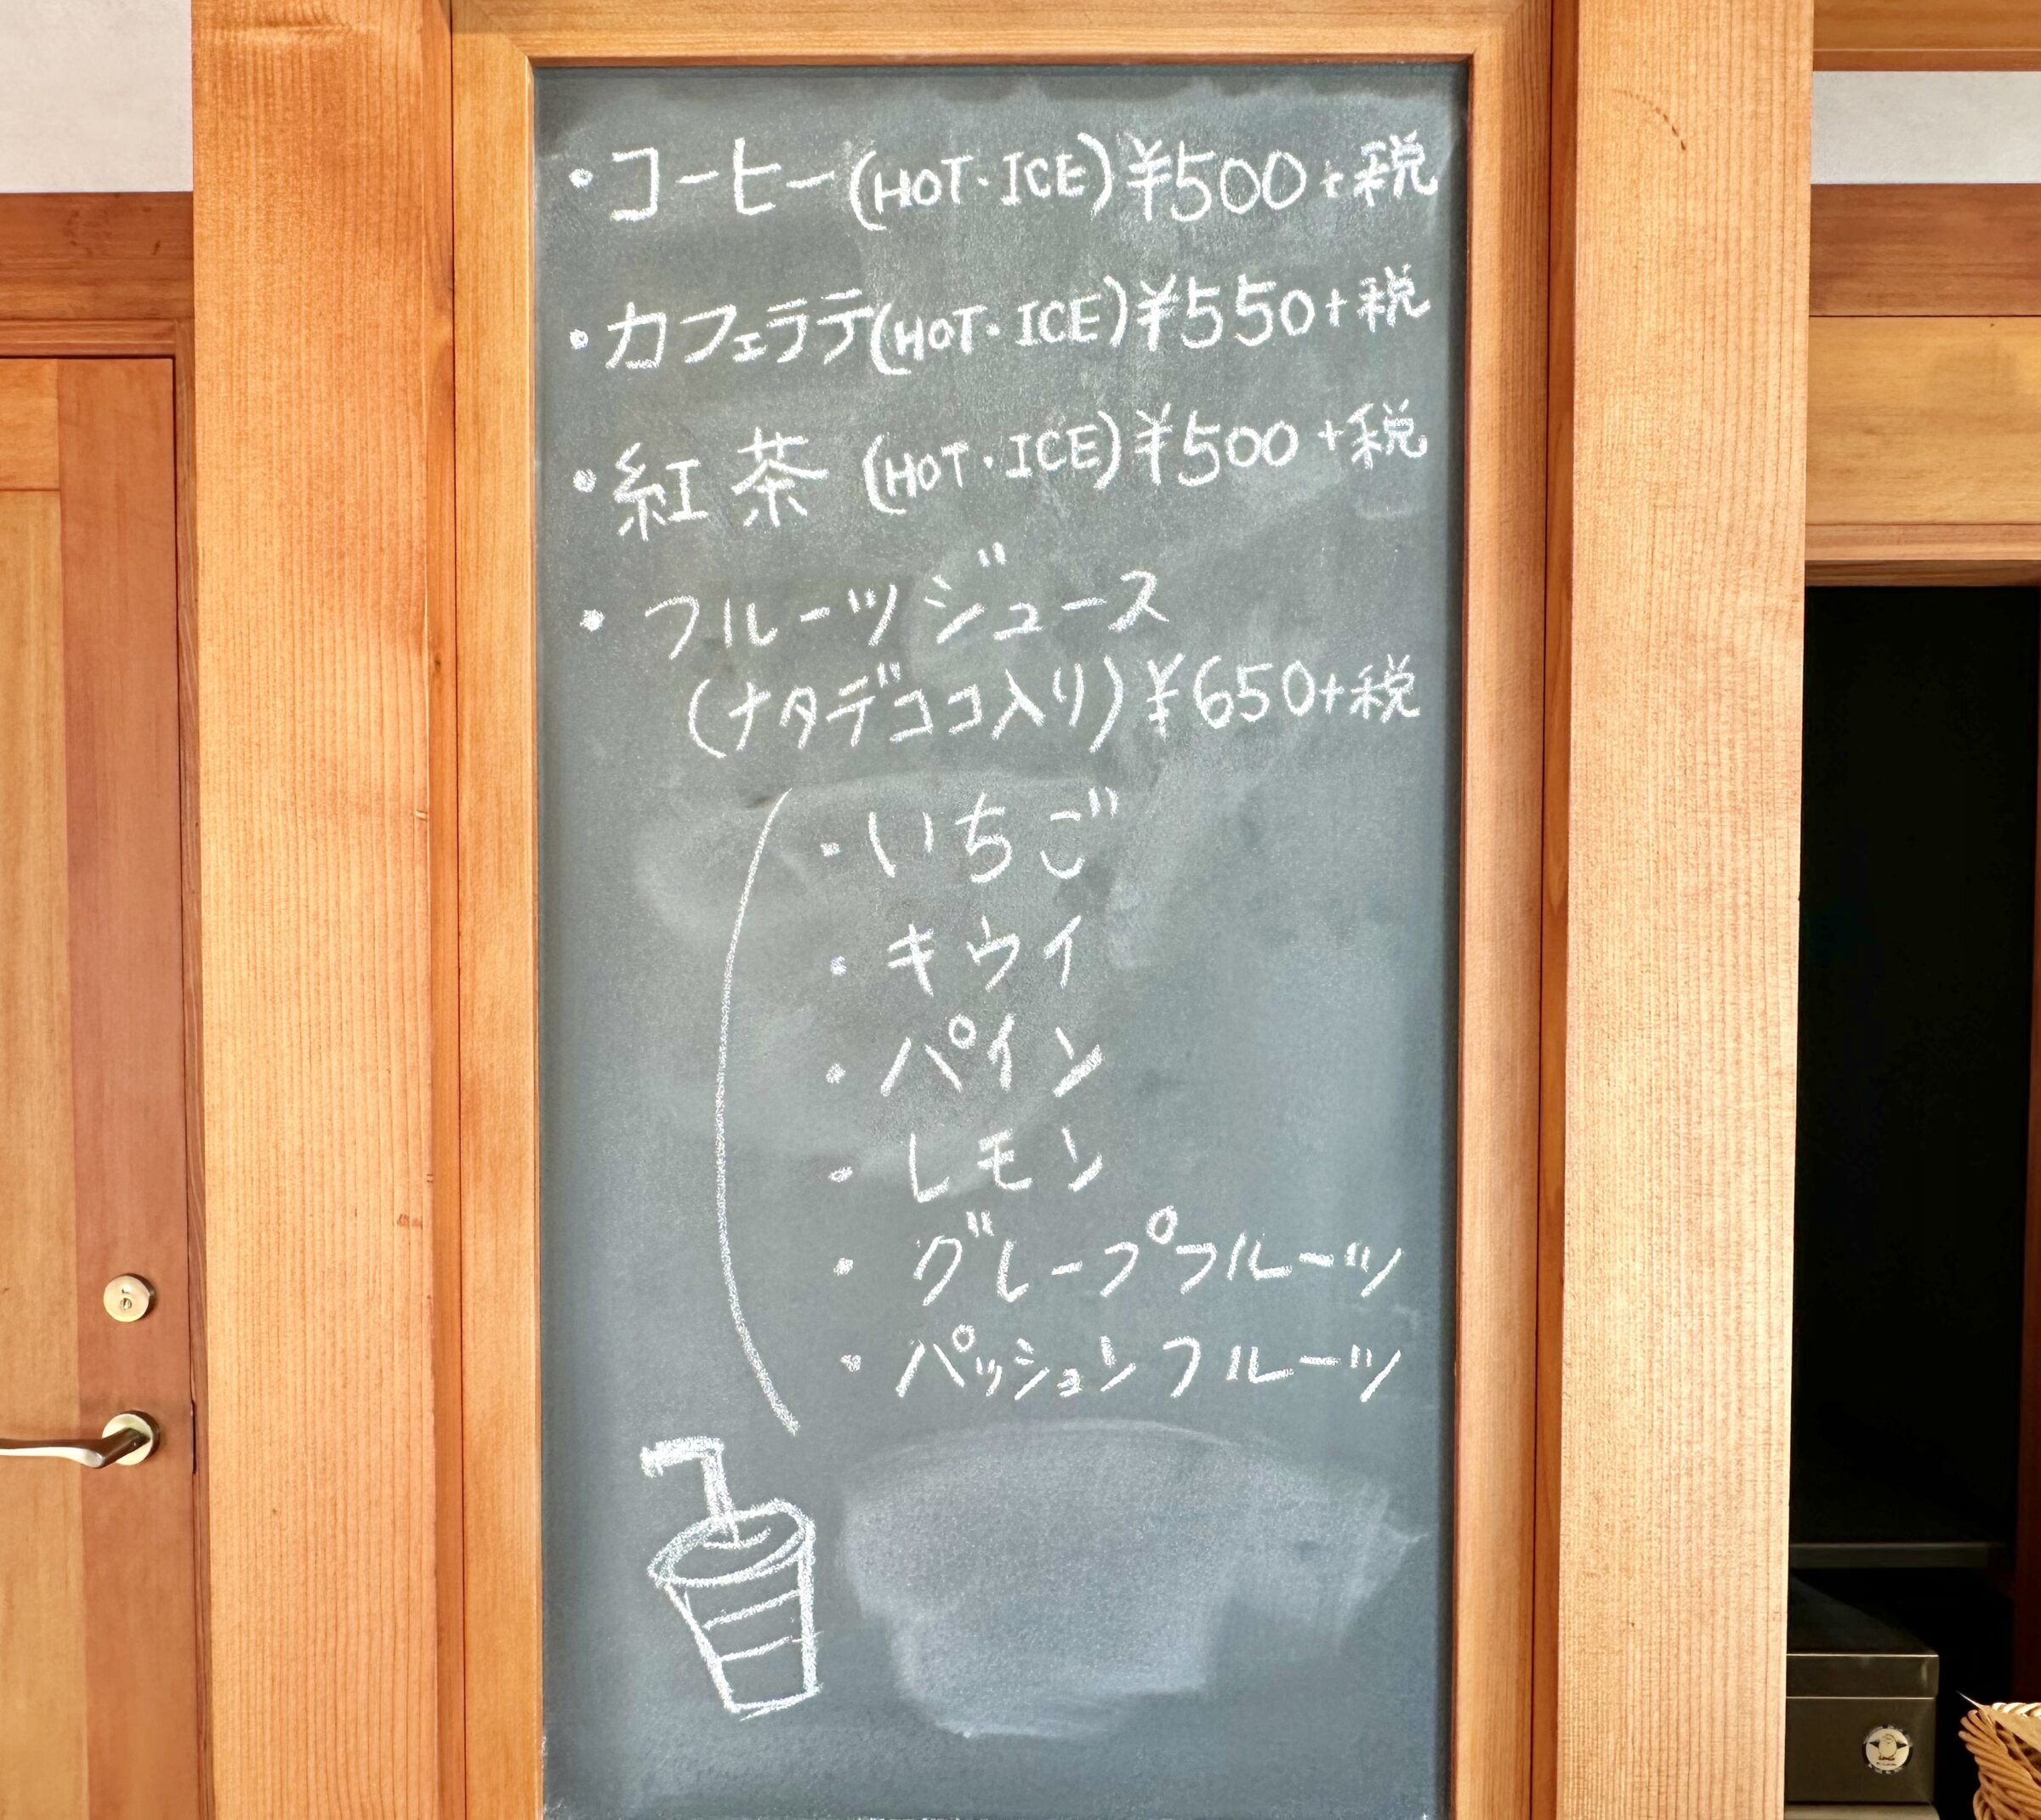 ・コーヒー(HOT・ICE)¥500+税
・カフェラテ(HOT・ICE)¥550+税
・紅茶 (HOT・ICE)¥500+税
・フルーツジュース
(ナタデココ入り)¥650+税
・いちご
・キウイ
・パイン
・レモン
・グレープフルーツ
・パッションフルーツ